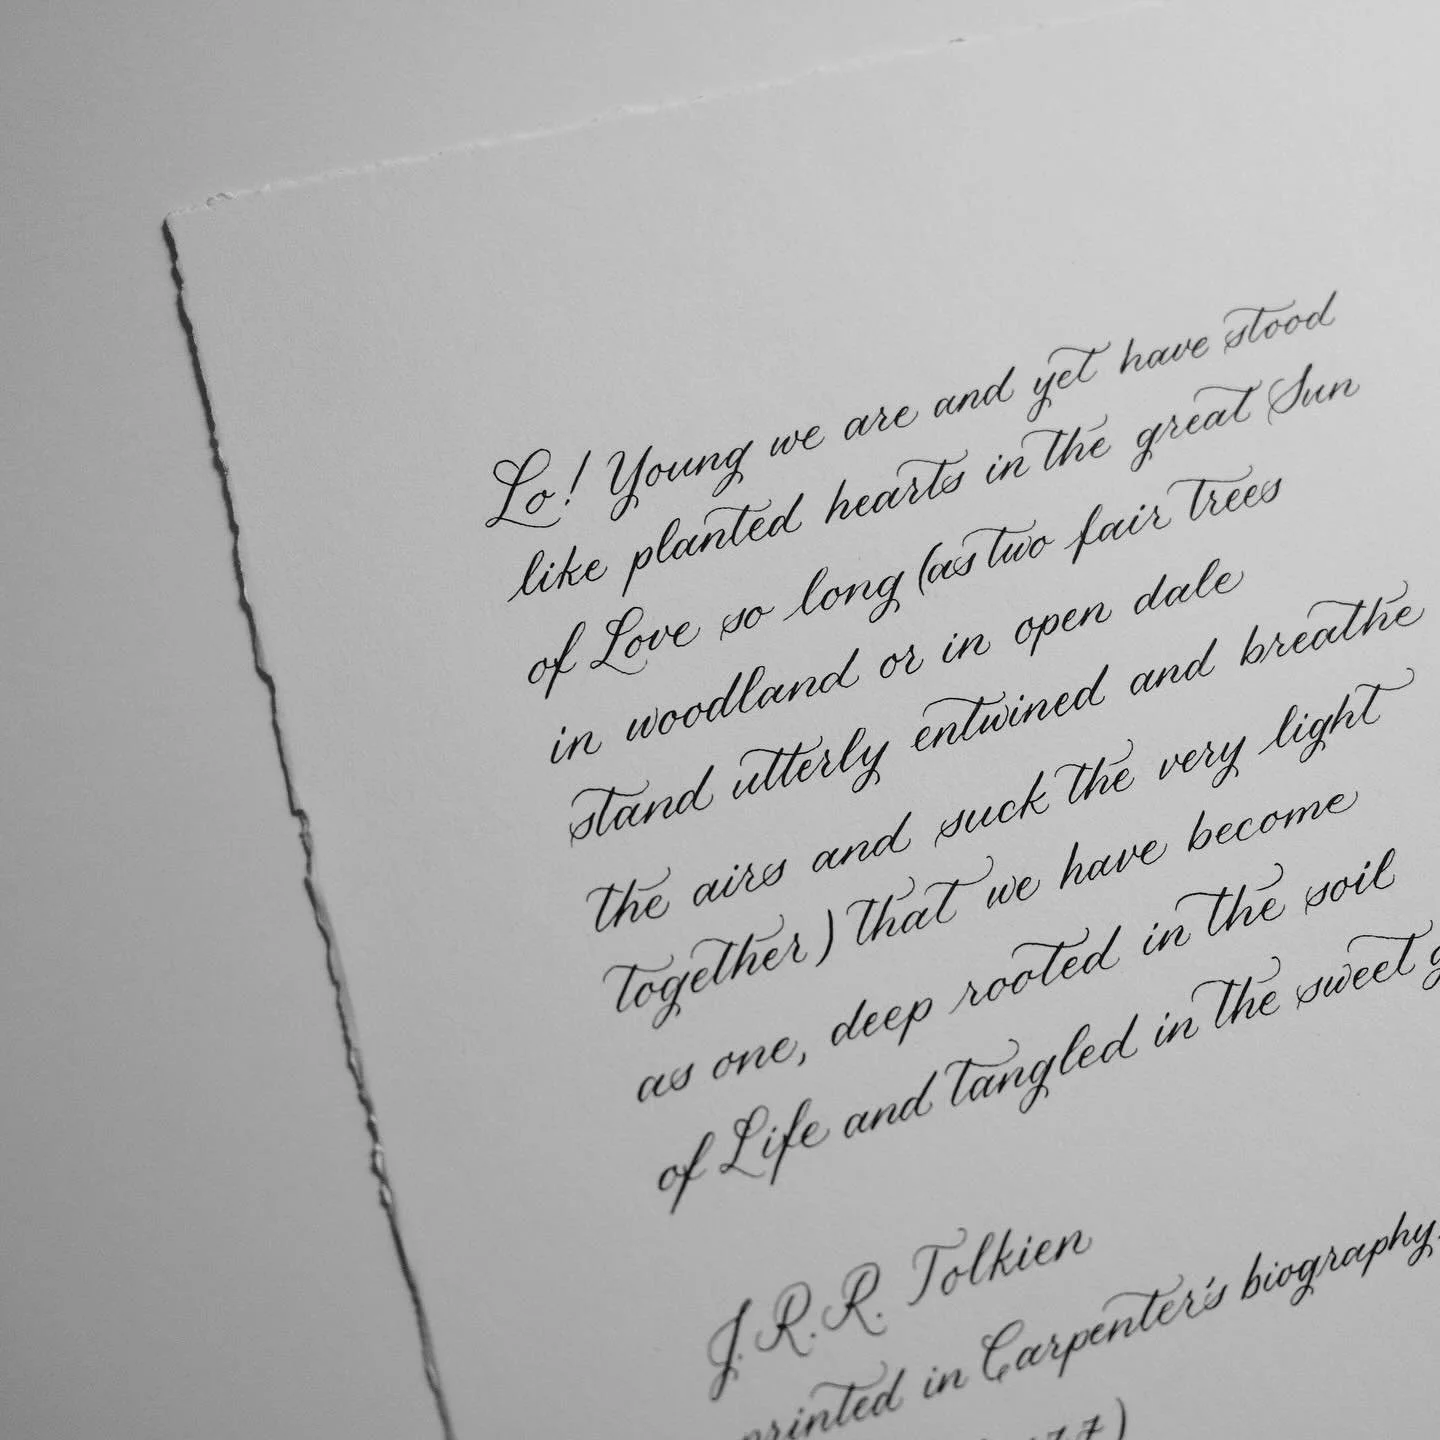 Lo! Young we are and yet have stood
like planted hearts in the great Sun
of Love so long (as two fair trees
in woodland or in open dale
stand utterly entwined and breathe
the airs and suck the very light
together) that we have become
as one, deep rooted in the soil
of Life and tangled in the sweet
J.R.R. Tolkien
printed in Carpenter's biography